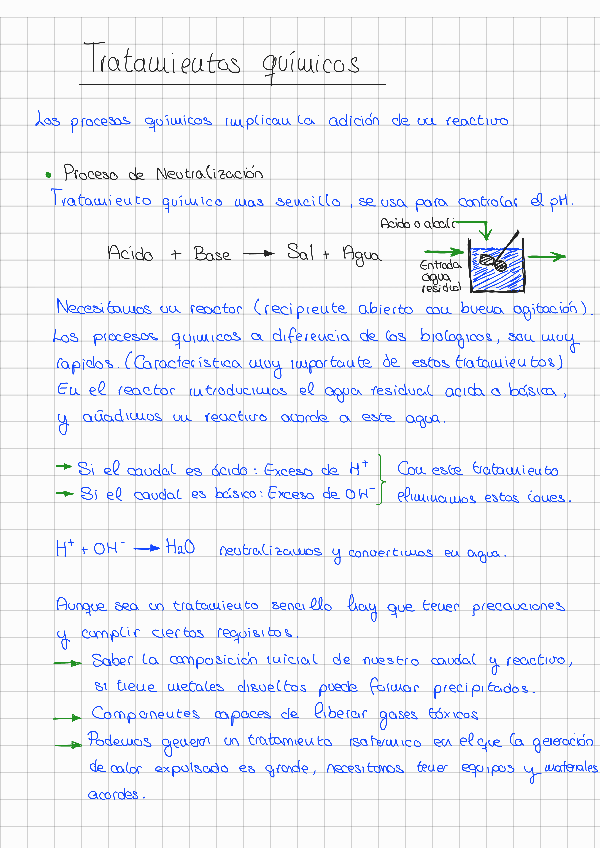 Tratamientos químicos
Los procesos químicos implican la adición de un reactivo
• Proceso de Neutralización
Tratamiento químico mas sencillo, se usa para controlar el pH.
Acido o alcali
Acido + Base → Sal + Agua
Entrada
agua
residual
Necesitamos un reactor (recipiente abierto con buena agitación).
Los procesos quimicos a diferencia de los biologicos, son muy
rapidos. (Característica muy importante de estos tratamientos)
En el reactor introducimos el agua residual acida o básica,
y añadimos un reactivo acorde a este agua.
→ Si el caudal es ácido: Exceso de H⁺
→ Si el caudal es básico: Exceso de OH⁻
Con este tratamiento
eliminamos estos iones.
H⁺ + OH⁻ → H2O neutralizamos y convertimos en agua.
Aunque sea un tratamiento sencillo hay que tener precauciones
y cumplir ciertos requisitos.
→ Saber la composición inicial de nuestro caudal y reactivo,
si tiene metales disueltos puede formar precipitados.
→ Componentes capaces de liberar gases tóxicos
→ Podemos generar un tratamiento isotermico en el que la generación
de calor expulsado es grande, necesitamos tener equipos y materiales
acordes.